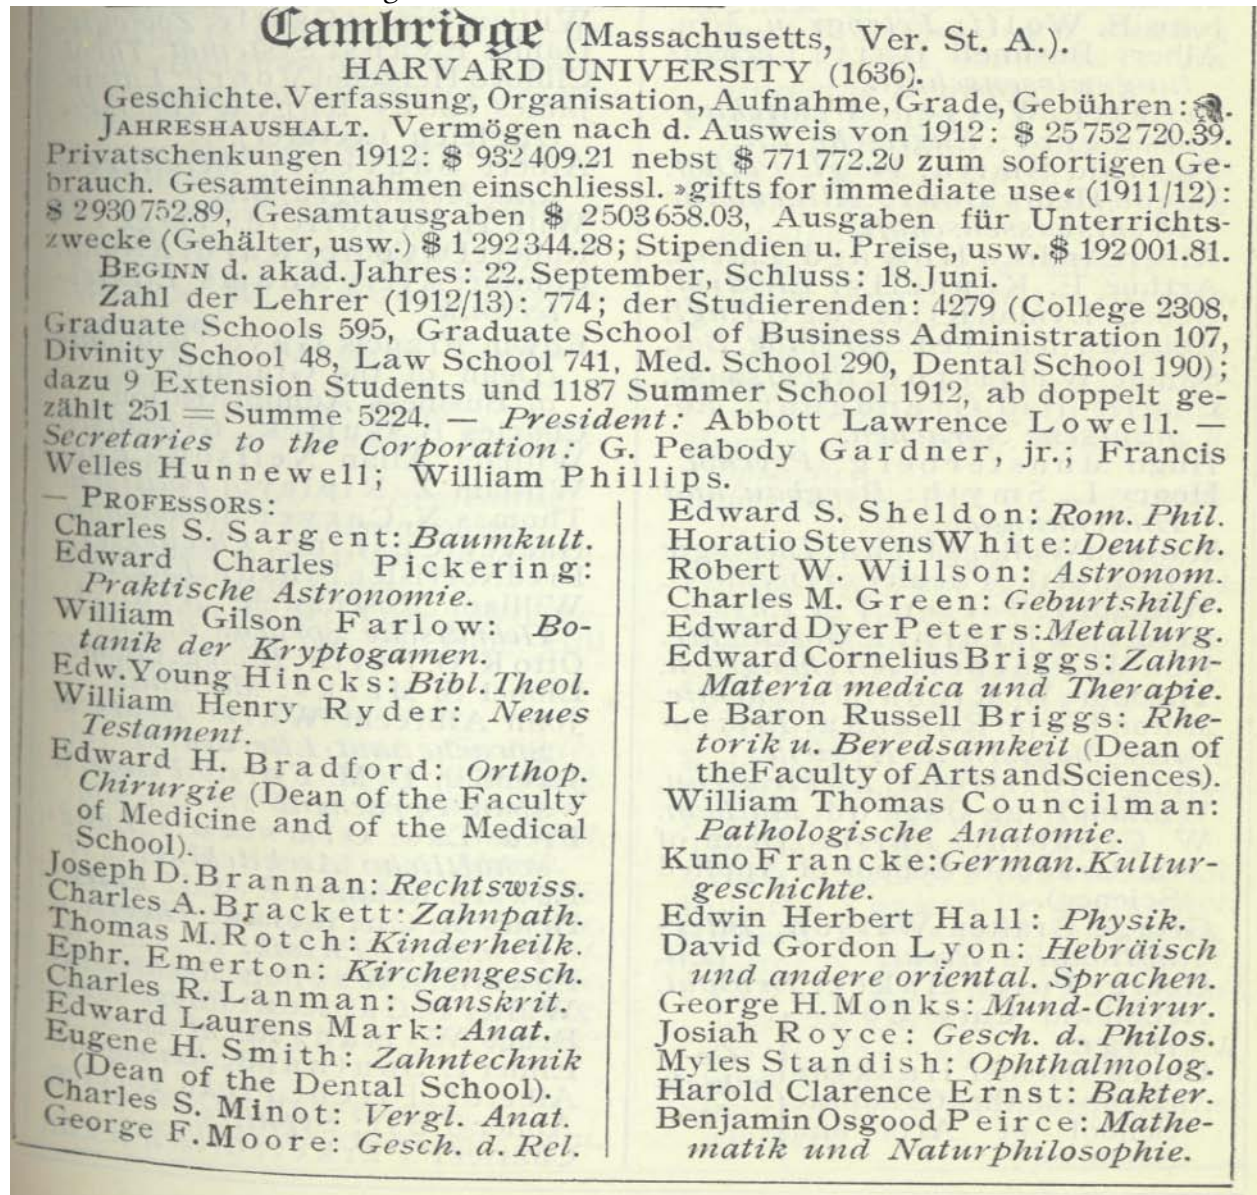 Cambridge (Massachusetts, Ver. St. A.).
HARVARD UNIVERSITY (1636).
Geschichte.Verfassung, Organisation, Aufnahme, Grade, Gebühren: .
JAHRESHAUSHALT. Vermögen nach d. Ausweis von 1912: $ 25 752 720.39.
Privatschenkungen 1912: $ 932 409.21 nebst $ 771 772.20 zum sofortigen Ge-
brauch. Gesamteinnahmen einschliessl. »gifts for immediate use« (1911/12):
$ 2 930 752.89, Gesamtausgaben $ 2 503 658.03, Ausgaben für Unterrichts-
zwecke (Gehälter, usw.) $ 1 292 344.28; Stipendien u. Preise, usw. $ 192 001.81.
BEGINN d. akad. Jahres: 22. September, Schluss: 18. Juni.
Zahl der Lehrer (1912/13): 774; der Studierenden: 4279 (College 2308,
Graduate Schools 595, Graduate School of Business Administration 107,
Divinity School 48, Law School 741, Med. School 290, Dental School 190);
dazu 9 Extension Students und 1187 Summer School 1912, ab doppelt ge-
zählt 251 = Summe 5224. — President: Abbott Lawrence Lowell. —
Secretaries to the Corporation: G. Peabody Gardner, jr.; Francis
Welles Hunnewell; William Phillips.
— PROFESSORS:
Charles S. Sargent: Baumkult.
Edward Charles Pickering:
Praktische Astronomie.
William Gilson Farlow: Bo-
tanik der Kryptogamen.
Edw. Young Hincks: Bibl. Theol.
William Henry Ryder: Neues
Testament.
Edward H. Bradford: Orthop.
Chirurgie (Dean of the Faculty
of Medicine and of the Medical
School).
Joseph D. Brannan: Rechtswiss.
Charles A. Brackett: Zahnpath.
Thomas M. Rotch: Kinderheilk.
Ephr. Emerton: Kirchengesch.
Charles R. Lanman: Sanskrit.
Edward Laurens Mark: Anat.
Eugene H. Smith: Zahntechnik
(Dean of the Dental School).
Charles S. Minot: Vergl. Anat.
George F. Moore: Gesch. d. Rel.
Edward S. Sheldon: Rom. Phil.
Horatio Stevens White: Deutsch.
Robert W. Willson: Astronom.
Charles M. Green: Geburtshilfe.
Edward Dyer Peters: Metallurg.
Edward Cornelius Briggs: Zahn-
Materia medica und Therapie.
Le Baron Russell Briggs: Rhe-
torik u. Beredsamkeit (Dean of
the Faculty of Arts and Sciences).
William Thomas Councilman:
Pathologische Anatomie.
Kuno Francke: German. Kultur-
geschichte.
Edwin Herbert Hall: Physik.
David Gordon Lyon: Hebräisch
und andere oriental. Sprachen.
George H. Monks: Mund-Chirur.
Josiah Royce: Gesch. d. Philos.
Myles Standish: Ophthalmolog.
Harold Clarence Ernst: Bakter.
Benjamin Osgood Peirce: Mathe-
matik und Naturphilosophie.